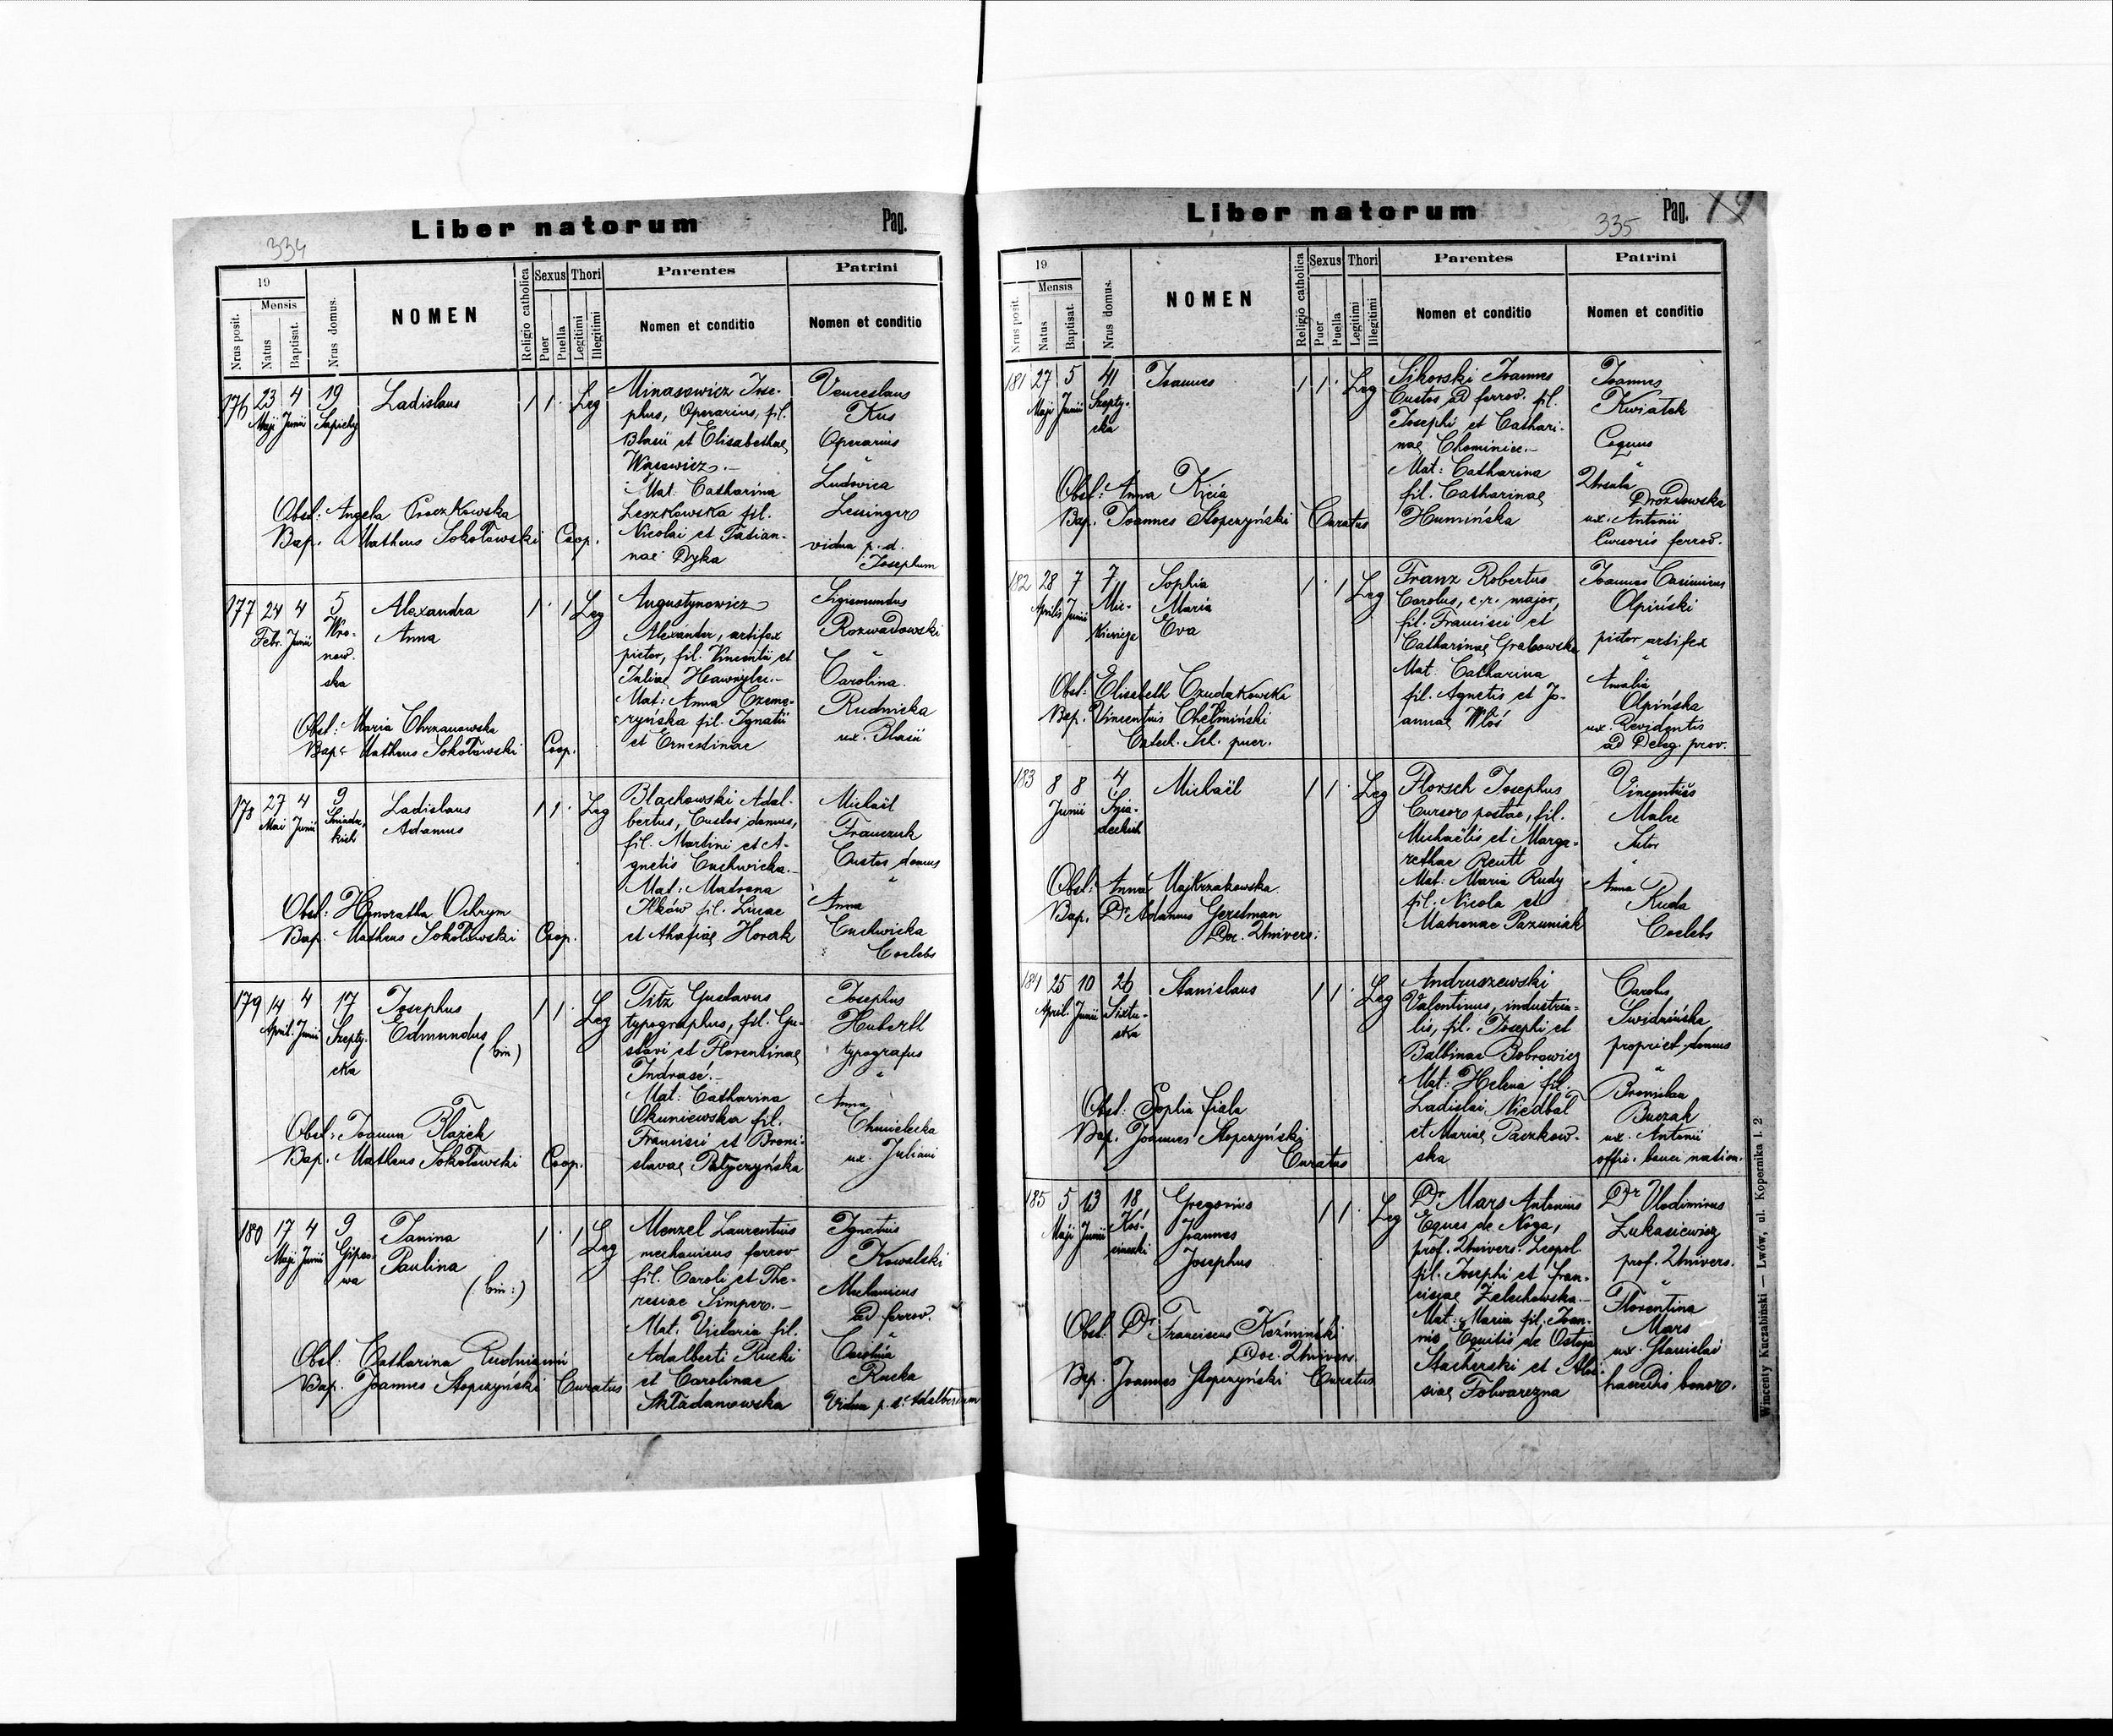 Liber natorum
Pag.
334
19
Mensis
Nrus posit.
Natus
Baptisat.
Nrus domus.
NOMEN
Religio catholica
Sexus
Puer
Puella
Thori
Legitimi
Illegitimi
Parentes
Nomen et conditio
Patrini
Nomen et conditio
176 23 4 19 Ladislaus 1 1 Leg
Maji Junii Sapiehy
Minasowicz Jose-
phus, Operarius, fil.
Blasii et Elisabethae
Wąsowicz.-
Mat. Catharina
Leszkowska fil.
Nicolai et Tatian-
nae Dyka
Venceslaus
Kus
Operarius
"
Ludovica
Lessinger
vidua p. d.
Josephum
Obst: Angela Proczkowska
Bap. Matheus Sokołowski Coop.
177 24 4 5 Alexandra 1 1 Leg
Febr. Junii Wro-
now-
ska
Anna
Augustynowicz
Alexander, artifex
pictor, fil. Vincentii et
Juliae
Mat: Anna Czeme-
ryńska fil. Ignatii
et Ernestinae
Sigismundus
Rozwadowski
"
Carolina
Rudnicka
ux. Blasii
Obst: Maria Chrzanowska
Bap. Matheus Sokołowski Coop.
178 27 4 9 Ladislaus 1 1 Leg
Mai Junii Śniadec-
kich
Adamus
Blachowski Adal-
bertus, Custos domus,
fil. Martini et A-
gnetis Cuchwicka.-
Mat: Matrona
Ilków fil. Lucae
et Ahafiae Horak
Michaël
Franczuk
Custos domus
"
Anna
Cuchwicka
Coelebs
Obst: Honoratha Ochrym
Bap. Matheus Sokołowski Coop.
179 14 4 17 Josephus 1 1 Leg
April. Junii Szepty-
cka
Edmundus
(bin)
Titz Gustavus
typographus, fil. Gu-
stavi et Florentinae
Mat: Catharina
Okuniewska fil.
Francisci et Broni-
slavae Patyczyńska
Josephus
Hubertl
typografus
"
Anna
Chmielecka
ux. Juliani
Obst: Joanna Błażek
Bap. Matheus Sokołowski Coop.
180 17 4 9 Janina 1 1 Leg
Maji Junii Gipso-
wa
Paulina
(: bin :)
Menzel Laurentius
mechanicus ferrov
fil. Caroli et The-
resiae Simper.-
Mat. Victoria fil.
Adalberti Rucki
et Carolinae
Składanowska
Ignatius
Kowalski
Mechanicus
ad ferrov.
"
Carolina
Rucka
Vidua p. d. Adalbertum
Obst: Catharina
Bap. Joannes Stopczyński Curatus
Liber natorum
335
Pag.
19
Mensis
Nrus posit.
Natus
Baptisat.
Nrus domus.
NOMEN
Religio catholica
Sexus
Puer
Puella
Thori
Legitimi
Illegitimi
Parentes
Nomen et conditio
Patrini
Nomen et conditio
181 27 5 41 Joannes 1 1 Leg
Maji Junii Szepty-
cka
Sikorski Joannes
Custos ad ferrov. fil.
Josephi et Cathari-
nae Chominice.-
Mat: Catharina
fil. Catharinae
Humińska
Joannes
Kwiatek
Coquus
"
Ursula
Drozdowska
ux. Antonii
Cursoris ferrov.
Obst: Anna Kicia
Bap. Joannes Stopczyński Curatus
182 28 7 7 Sophia 1 1 Leg
Aprilis Junii Mic-
kiewicza
Maria
Eva
Franz Robertus
Carolus, c.r. major,
fil. Francisci et
Catharinae Grabowska
Mat. Catharina
fil. Agnetis et Jo-
annae Włoś
Joannes Casimirus
Olpiński
pictor artifex
"
Amalia
Olpińska
ux. Revidentis
ad Deleg. prov.
Obst: Elisabeth Czudakowska
Bap. Vincentius Chełmiński
Catech. Sch. puer.
183 8 8 4 Michaël 1 1 Leg
Junii Śnia-
deckich
Florsch Josephus
Cursor postae, fil.
Michaëlis et Marga-
rethae Reutt
Mat: Maria Rudy
fil. Nicola et
Matronae Pazuniak
Vincentius
Malec
Sutor
"
Anna
Ruda
Coelebs
Obst: Anna Majkrzakowska
Bap. Dr Adamus Gerstman
Doc. Univers:
184 25 10 26 Stanislaus 1 1 Leg
April. Junii Sixtu-
ska
Andruszewski
Valentinus, industria-
lis, fil. Josephi et
Balbinae Bobrowicz
Mat: Helena fil.
Ladislai Niedbał
et Mariae Paczkow-
ska
Carolus
Świdzińska
propriet. domus
"
Bronislaa
Buczak
ux. Antonii
offic. banci nation.
Obst: Sophia Fiala
Bap. Joannes Stopczyński
Curatus
185 5 13 18 Gregorius 1 1 Leg
Maji Junii Koś-
ciuszki
Joannes
Josephus
Dr Mars Antonius
Eques de Noga,
prof. Univers. Leopol.
fil. Josephi et Fran-
cisae Żelechowska.-
Mat: Maria fil. Joan-
nis Equitis de Ostoja
Stacherski et Aloi-
siae Folwarczna
Dr Vlodimirus
Łukasiewicz
prof. Univers.
"
Florentina
Mars
ux. Stanislai
haeredis bonor.
Obst. Dr Franciscus Koźmiński
Doc. Univers.
Bap. Joannes Stopczyński Curatus
Wincenty Kuczabiński — Lwów, ul. Kopernika l. 2